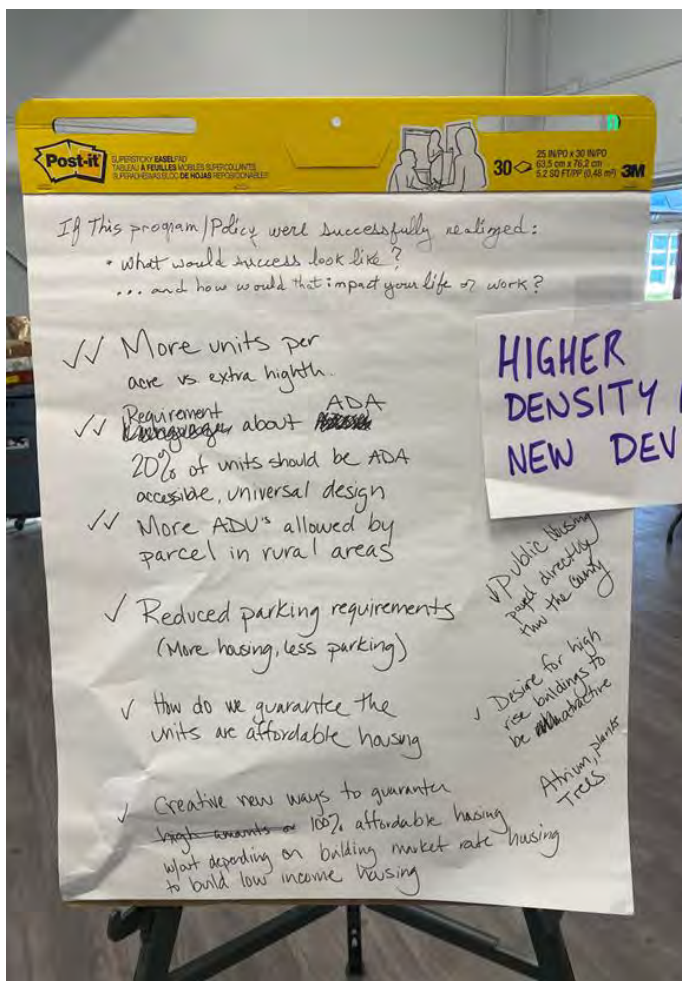 Post-it
SUPERSTICKY EASEL PAD
TABLEAU À FEUILLES MOBILES SUPERCOLLANTES
SUPERADHESIVAS BLOC DE HOJAS REPOSICIONABLES
30
25 IN/PO x 30 IN/PO
63,5 cm x 76,2 cm
5.2 SQ FT/PP (0,48 m²)
3M
If This program/Policy were successfully realized:
• What would success look like?
... and how would that impact your life or work?
✓✓ More units per
acre vs extra highth.
✓✓ Requirement about ADA
20% of units should be ADA
accessible, universal design
✓✓ More ADU's allowed by
parcel in rural areas
✓ Reduced parking requirements
(More housing, less parking)
✓ How do we guarantee the
units are affordable housing
✓ Creative new ways to guarantee
high amounts 100% affordable housing
w/out depending on building market rate housing
to build low income housing
HIGHER
DENSITY
NEW DEV
✓ Public housing
payed directly
thru the County
✓ Desire for high
rise buildings to
be atractive
Atrium, plants
Trees